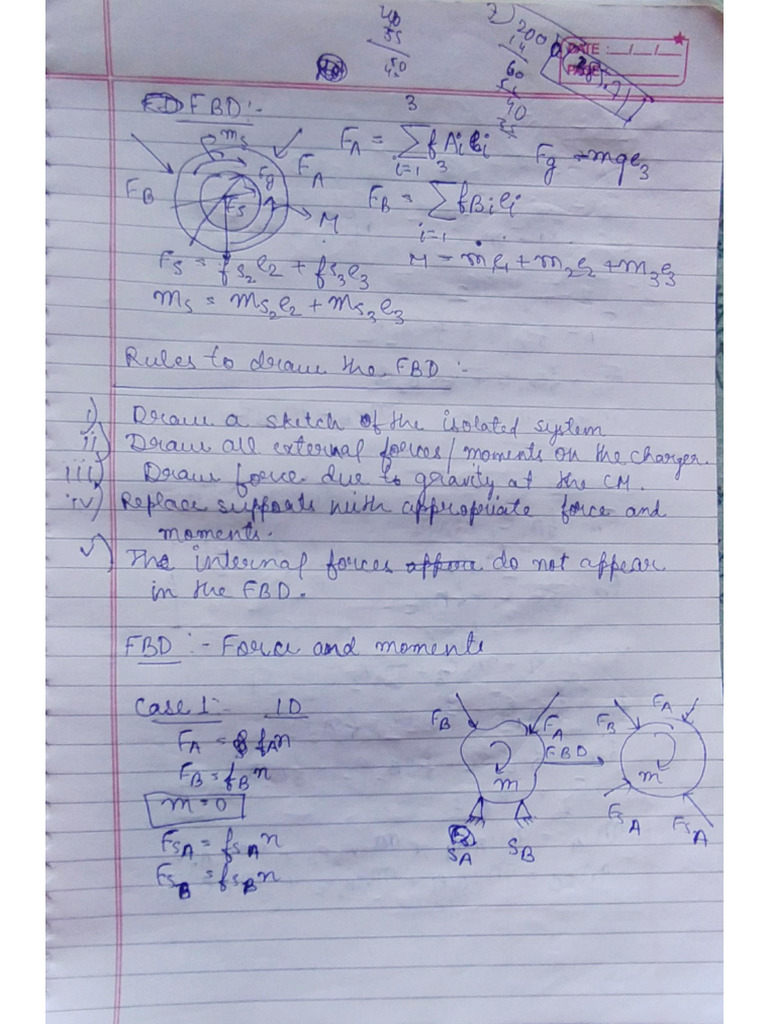 DATE: __/__/__
PAGE
40
35
50
7) 200
14
60
56
40
35
FBD :-
ms
FB
FA
Fg
Fs
M
3
FA = ∑ fAi ei
i=1
Fg = -mge3
3
FB = ∑ fBi ei
i=1
Fs = fs2e2 + fs3e3
M = m1e1 + m2e2 + m3e3
ms = ms2e2 + ms3e3
Rules to draw the FBD :-
i) Draw a sketch of the isolated system
ii) Draw all external forces/moments on the charger.
iii) Draw force due to gravity at the CM.
iv) Replace supports with appropriate force and
moments.
v) The internal forces do not appear
in the FBD.
FBD :- Force and moments
Case 1 :- 1D
FA = fAn
FB = fBn
m = 0
FSA = fSAn
FSB = fSBn
FB
FA
m
SA
SB
FBD
FA
FB
m
FSA
FSA